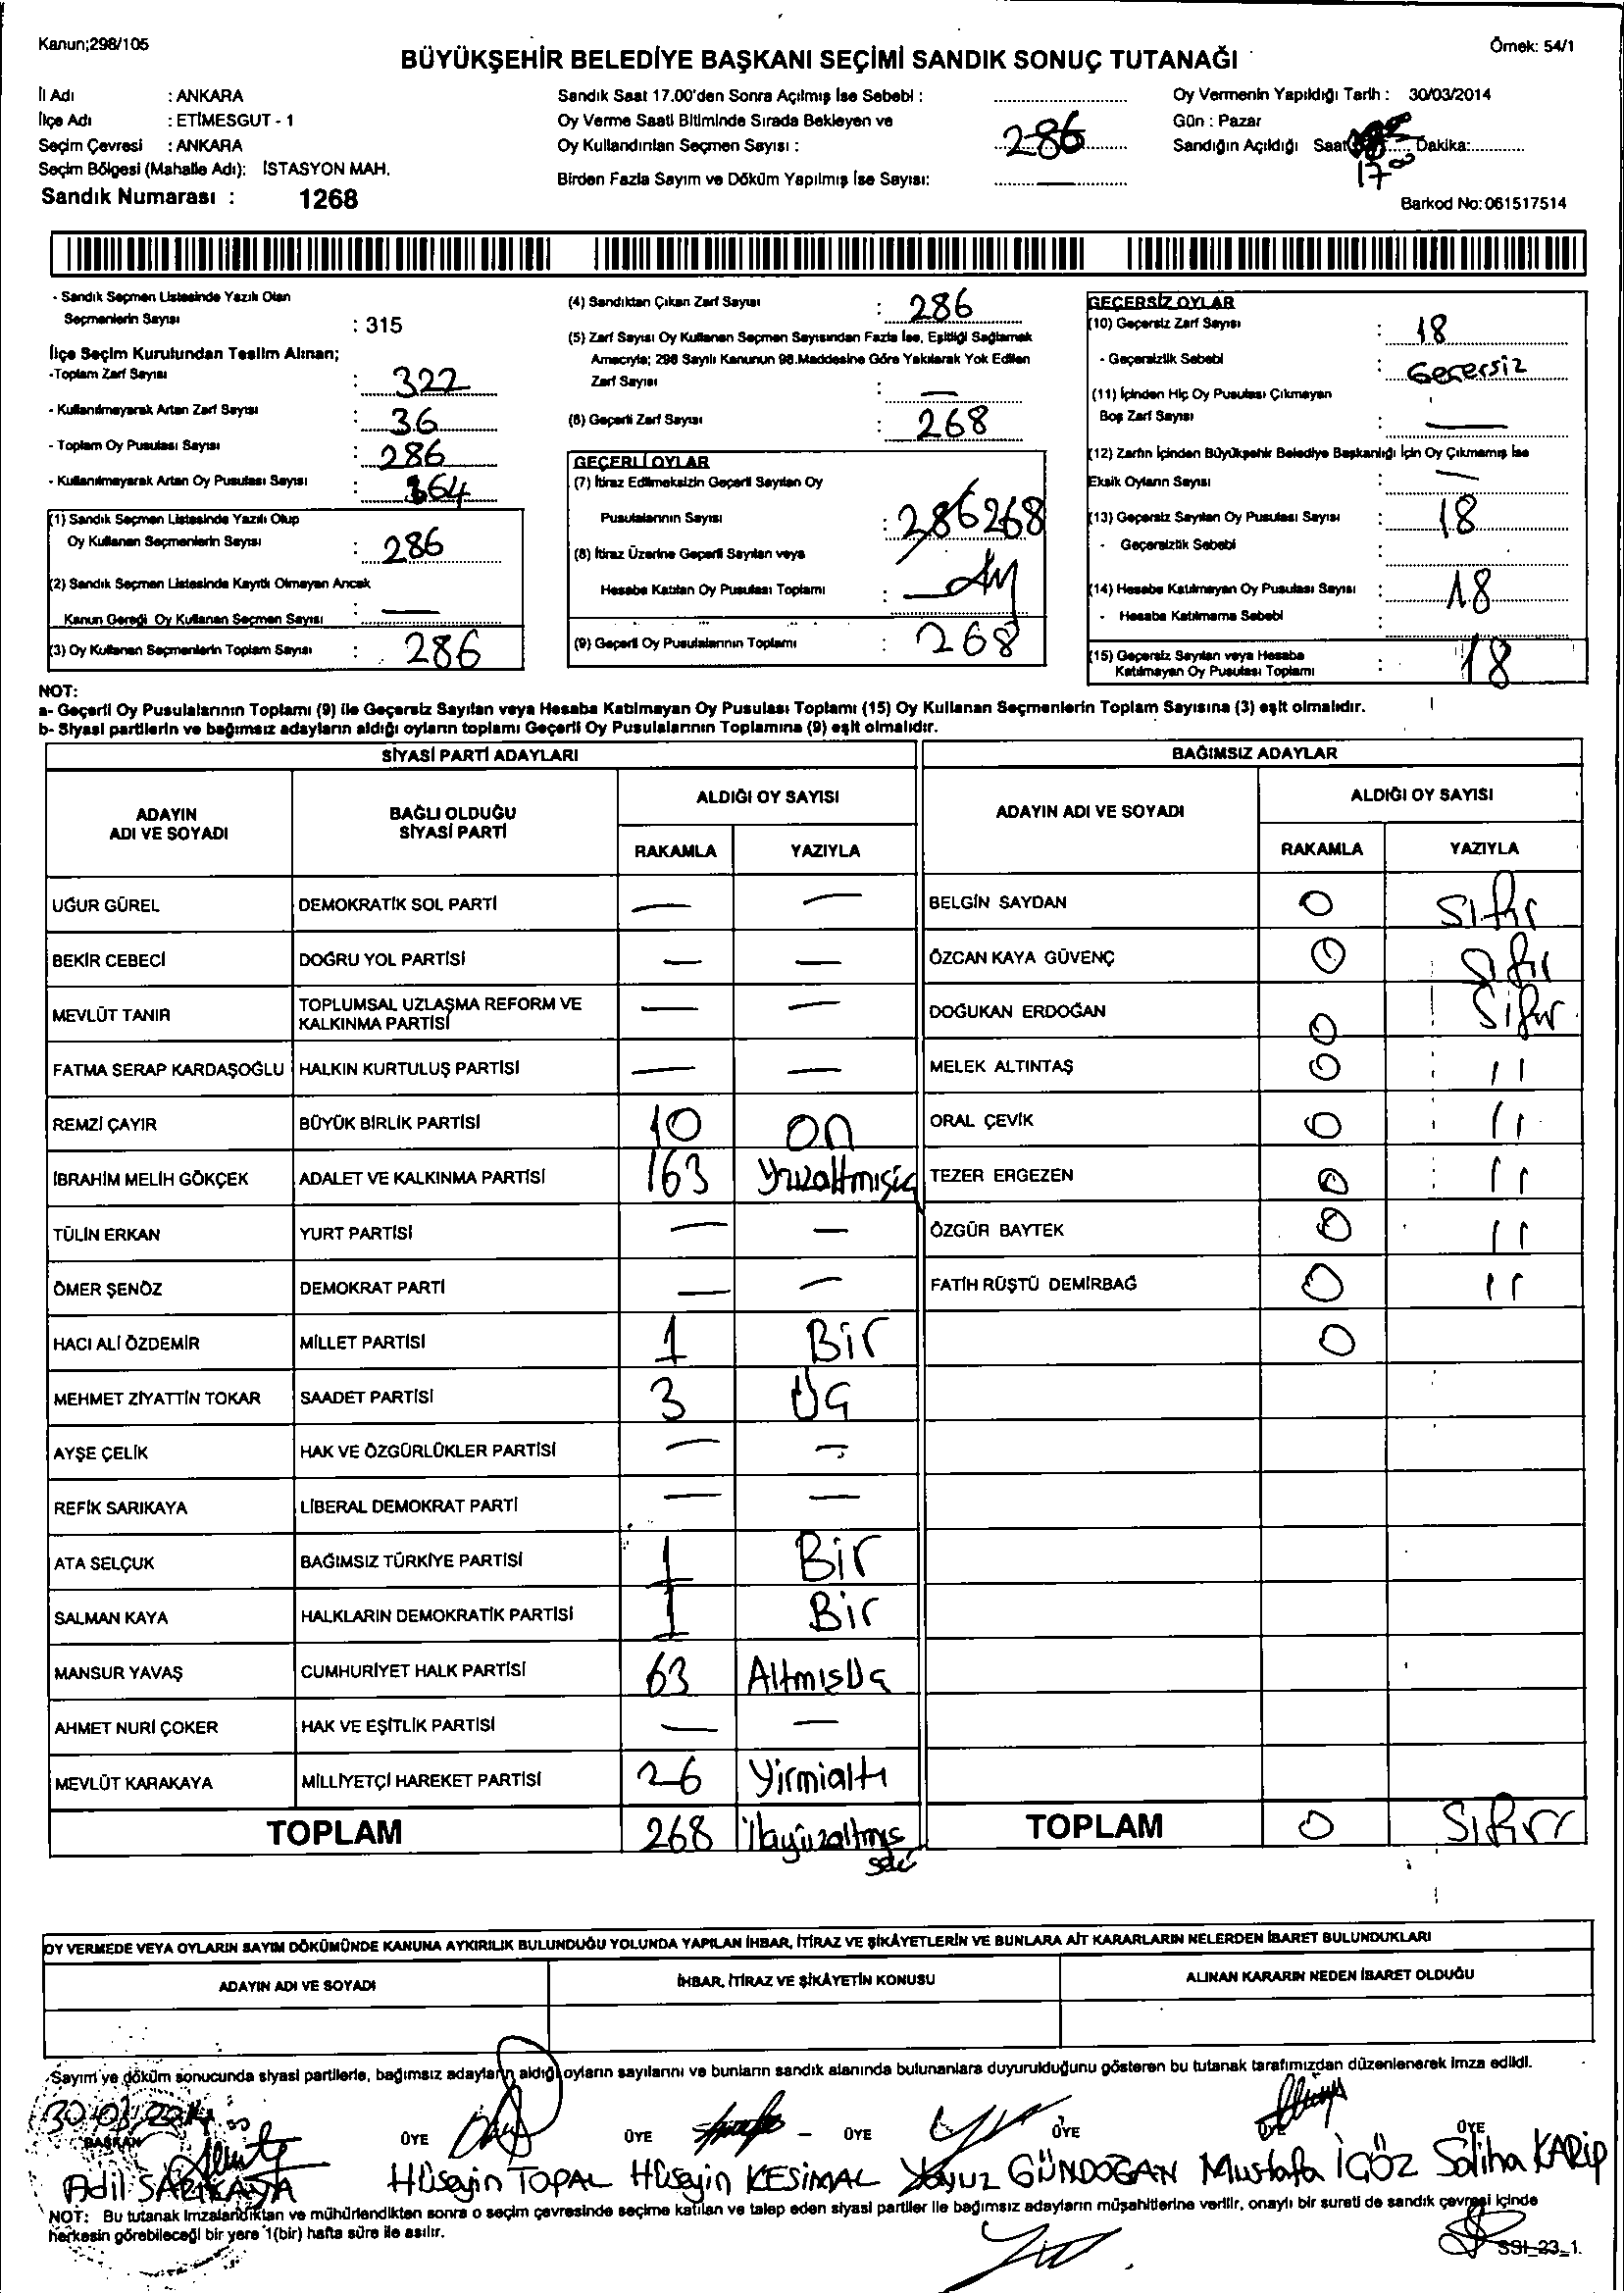 Kanun;298/105
Örnek: 54/1
BÜYÜKŞEHİR BELEDİYE BAŞKANI SEÇİMİ SANDIK SONUÇ TUTANAĞI
İl Adı : ANKARA
İlçe Adı : ETİMESGUT - 1
Seçim Çevresi : ANKARA
Seçim Bölgesi (Mahalle Adı): İSTASYON MAH.
Sandık Numarası : 1268
Sandık Saat 17.00'den Sonra Açılmış İse Sebebi :
Oy Verme Saati Bitiminde Sırada Bekleyen ve
Oy Kullandırılan Seçmen Sayısı : 286
Birden Fazla Sayım ve Döküm Yapılmış İse Sayısı: —
Oy Vermenin Yapıldığı Tarih : 30/03/2014
Gün : Pazar
Sandığın Açıldığı Saat Dakika:
17 00
Barkod No: 061517514
- Sandık Seçmen Listesinde Yazılı Olan
Seçmenlerin Sayısı : 315
İlçe Seçim Kurulundan Teslim Alınan;
-Toplam Zarf Sayısı : 322
- Kullanılmayarak Artan Zarf Sayısı : 36
- Toplam Oy Pusulası Sayısı : 286
- Kullanılmayarak Artan Oy Pusulası Sayısı : 64
(1) Sandık Seçmen Listesinde Yazılı Olup
Oy Kullanan Seçmenlerin Sayısı : 286
(2) Sandık Seçmen Listesinde Kayıtlı Olmayan Ancak
Kanun Gereği Oy Kullanan Seçmen Sayısı : —
(3) Oy Kullanan Seçmenlerin Toplam Sayısı : 286
(4) Sandıktan Çıkan Zarf Sayısı : 286
(5) Zarf Sayısı Oy Kullanan Seçmen Sayısından Fazla İse, Eşitliği Sağlamak
Amacıyla; 298 Sayılı Kanunun 98.Maddesine Göre Yakılarak Yok Edilen
Zarf Sayısı : —
(6) Geçerli Zarf Sayısı : 268
GEÇERLİ OYLAR
(7) İtiraz Edilmeksizin Geçerli Sayılan Oy
Pusulalarının Sayısı : 286 268
(8) İtiraz Üzerine Geçerli Sayılan veya
Hesaba Katılan Oy Pusulası Toplamı : —
(9) Geçerli Oy Pusulalarının Toplamı : 268
GEÇERSİZ OYLAR
(10) Geçersiz Zarf Sayısı : 18
- Geçersizlik Sebebi : Geçersiz
(11) İçinden Hiç Oy Pusulası Çıkmayan
Boş Zarf Sayısı : —
(12) Zarfın İçinden Büyükşehir Belediye Başkanlığı İçin Oy Çıkmamış İse
Eksik Oyların Sayısı : —
(13) Geçersiz Sayılan Oy Pusulası Sayısı : 18
- Geçersizlik Sebebi :
(14) Hesaba Katılmayan Oy Pusulası Sayısı : 18
- Hesaba Katılmama Sebebi :
(15) Geçersiz Sayılan veya Hesaba
Katılmayan Oy Pusulası Toplamı : 18
NOT:
a- Geçerli Oy Pusulalarının Toplamı (9) ile Geçersiz Sayılan veya Hesaba Katılmayan Oy Pusulası Toplamı (15) Oy Kullanan Seçmenlerin Toplam Sayısına (3) eşit olmalıdır.
b- Siyasi partilerin ve bağımsız adayların aldığı oyların toplamı Geçerli Oy Pusulalarının Toplamına (9) eşit olmalıdır.
SİYASİ PARTİ ADAYLARI
ADAYIN ADI VE SOYADI
BAĞLI OLDUĞU SİYASİ PARTİ
ALDIĞI OY SAYISI
RAKAMLA YAZIYLA
UĞUR GÜREL DEMOKRATİK SOL PARTİ — —
BEKİR CEBECİ DOĞRU YOL PARTİSİ — —
MEVLÜT TANIR TOPLUMSAL UZLAŞMA REFORM VE KALKINMA PARTİSİ — —
FATMA SERAP KARDAŞOĞLU HALKIN KURTULUŞ PARTİSİ — —
REMZİ ÇAYIR BÜYÜK BİRLİK PARTİSİ 10 on
İBRAHİM MELİH GÖKÇEK ADALET VE KALKINMA PARTİSİ 163 Yüzaltmışüç
TÜLİN ERKAN YURT PARTİSİ — —
ÖMER ŞENÖZ DEMOKRAT PARTİ — —
HACI ALİ ÖZDEMİR MİLLET PARTİSİ 1 Bir
MEHMET ZİYATTİN TOKAR SAADET PARTİSİ 3 Üç
AYŞE ÇELİK HAK VE ÖZGÜRLÜKLER PARTİSİ — —
REFİK SARIKAYA LİBERAL DEMOKRAT PARTİ — —
ATA SELÇUK BAĞIMSIZ TÜRKİYE PARTİSİ 1 Bir
SALMAN KAYA HALKLARIN DEMOKRATİK PARTİSİ 1 Bir
MANSUR YAVAŞ CUMHURİYET HALK PARTİSİ 63 AltmışÜç
AHMET NURİ ÇOKER HAK VE EŞİTLİK PARTİSİ — —
MEVLÜT KARAKAYA MİLLİYETÇİ HAREKET PARTİSİ 26 Yirmialtı
TOPLAM 268 ikiyüzaltmış
BAĞIMSIZ ADAYLAR
ADAYIN ADI VE SOYADI
ALDIĞI OY SAYISI
RAKAMLA YAZIYLA
BELGİN SAYDAN 0 Sıfır
ÖZCAN KAYA GÜVENÇ 0 Sıfır
DOĞUKAN ERDOĞAN 0 Sıfır
MELEK ALTINTAŞ 0 ıı
ORAL ÇEVİK 0 ıı
TEZER ERGEZEN 0 ıı
ÖZGÜR BAYTEK 0 ıı
FATİH RÜŞTÜ DEMİRBAĞ 0 ıı
0
TOPLAM 0 Sıfır
OY VERMEDE VEYA OYLARIN SAYIM DÖKÜMÜNDE KANUNA AYKIRILIK BULUNDUĞU YOLUNDA YAPILAN İHBAR, İTİRAZ VE ŞİKÂYETLERİN VE BUNLARA AİT KARARLARIN NELERDEN İBARET BULUNDUKLARI
ADAYIN ADI VE SOYADI İHBAR, İTİRAZ VE ŞİKÂYETİN KONUSU ALINAN KARARIN NEDEN İBARET OLDUĞU
Sayım ve döküm sonucunda siyasi partilerle, bağımsız adayların aldığı oyların sayılarını ve bunların sandık alanında bulunanlara duyurulduğunu gösteren bu tutanak tarafımızdan düzenlenerek imza edildi.
30.03.2014
BAŞKAN ÜYE ÜYE ÜYE ÜYE ÜYE ÜYE
Adil SARIKAYA Hüseyin TOPAL Hüseyin KESİMAL Yavuz GÜNDOĞAN Mustafa İÇÖZ Saliha KARİP
NOT: Bu tutanak imzalandıktan ve mühürlendikten sonra o seçim çevresinde seçime katılan ve talep eden siyasi partiler ile bağımsız adayların müşahitlerine verilir, onaylı bir sureti de sandık çevresi içinde
herkesin görebileceği bir yere 1(bir) hafta süre ile asılır.
SSI_23_1.